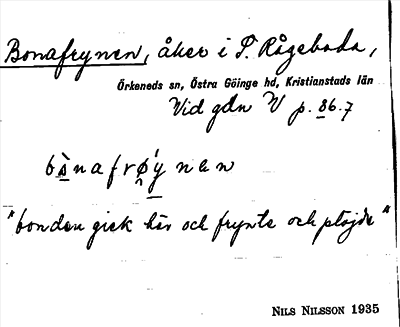 Bonafrynen, åker i S. Rågeboda,
Örkeneds sn, Östra Göinge hd, Kristianstads län
Vid gdn V p. 86.7
bònafrǿynen
"bonden gick här och frynte och plöjde"
NILS NILSSON 1935